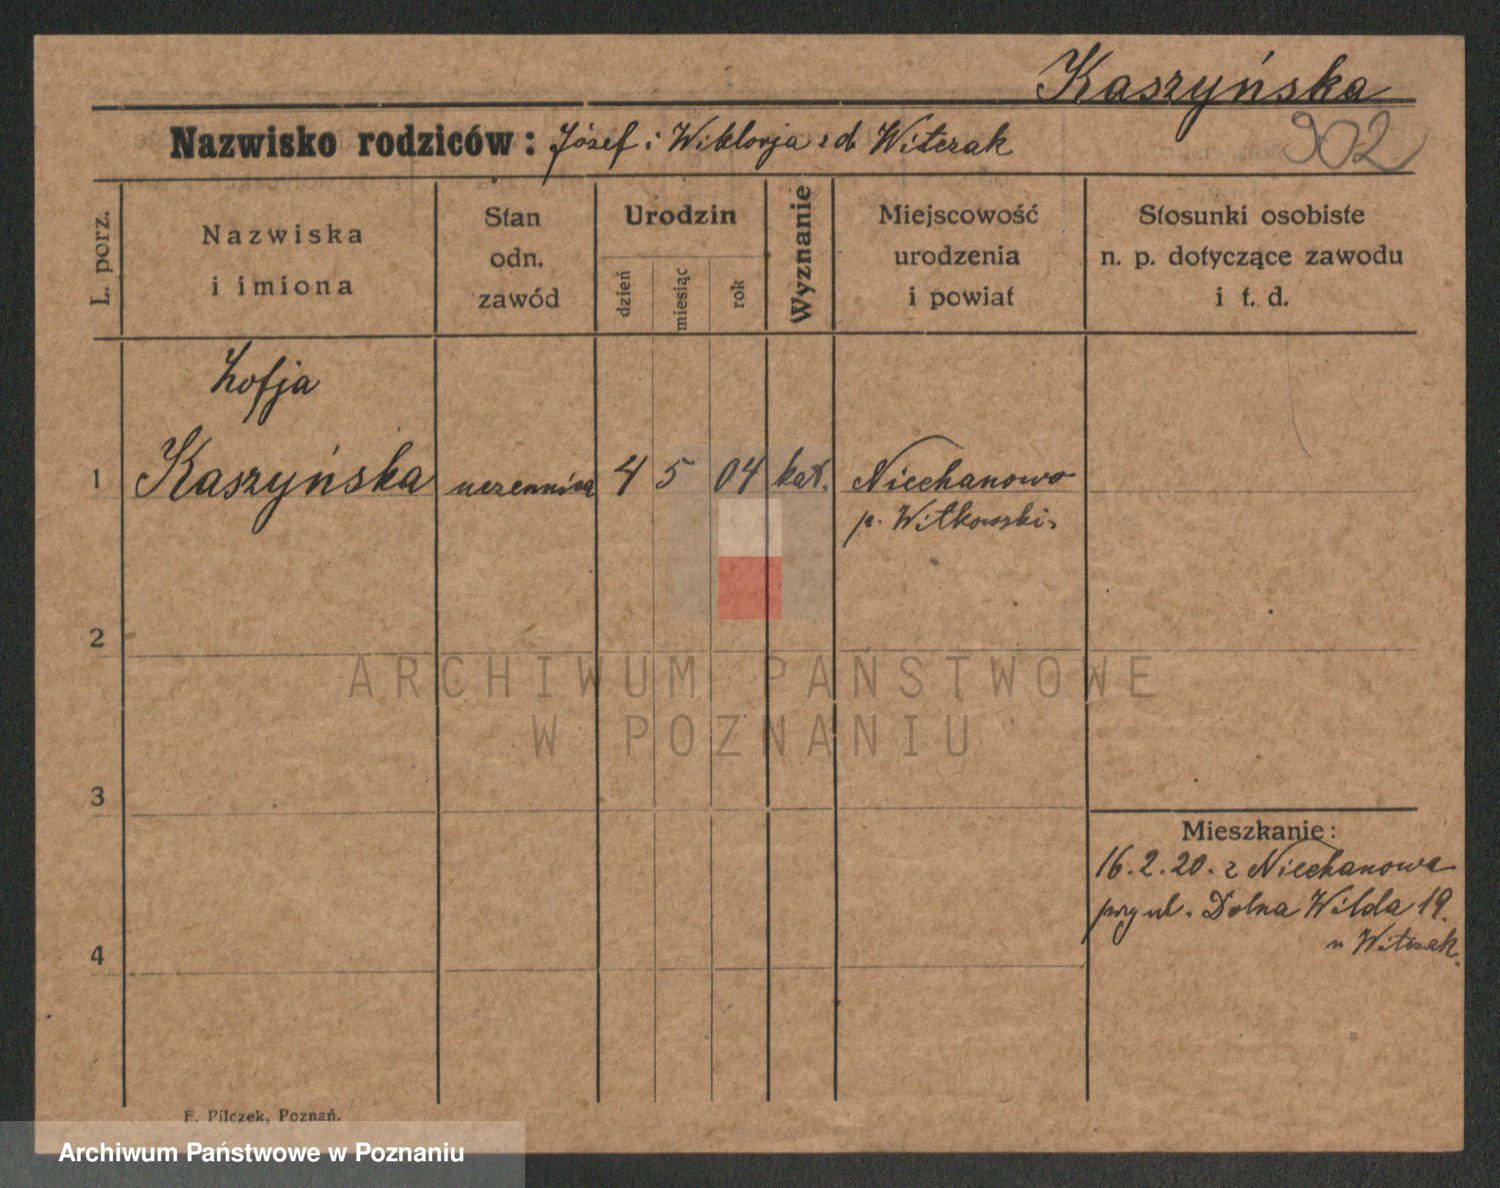 Kaszyńska
902
Nazwisko rodziców: Józef i Wiktorja z d. Witczak
L. porz.
Nazwiska
i imiona
Stan
odn.
zawód
Urodzin
dzień
miesiąc
rok
Wyznanie
Miejscowość
urodzenia
i powiat
Stosunki osobiste
n. p. dotyczące zawodu
i t. d.
Zofja
1 Kaszyńska uczennica 4 5 04 kat. Niechanowo
p. Witkowski.
2
ARCHIWUM PAŃSTWOWE
W POZNANIU
3
Mieszkanie:
16.2.20. z Niechanowa
przy ul. Dolna Wilda 19.
u Witczak.
4
F. Pilczek, Poznań.
Archiwum Państwowe w Poznaniu